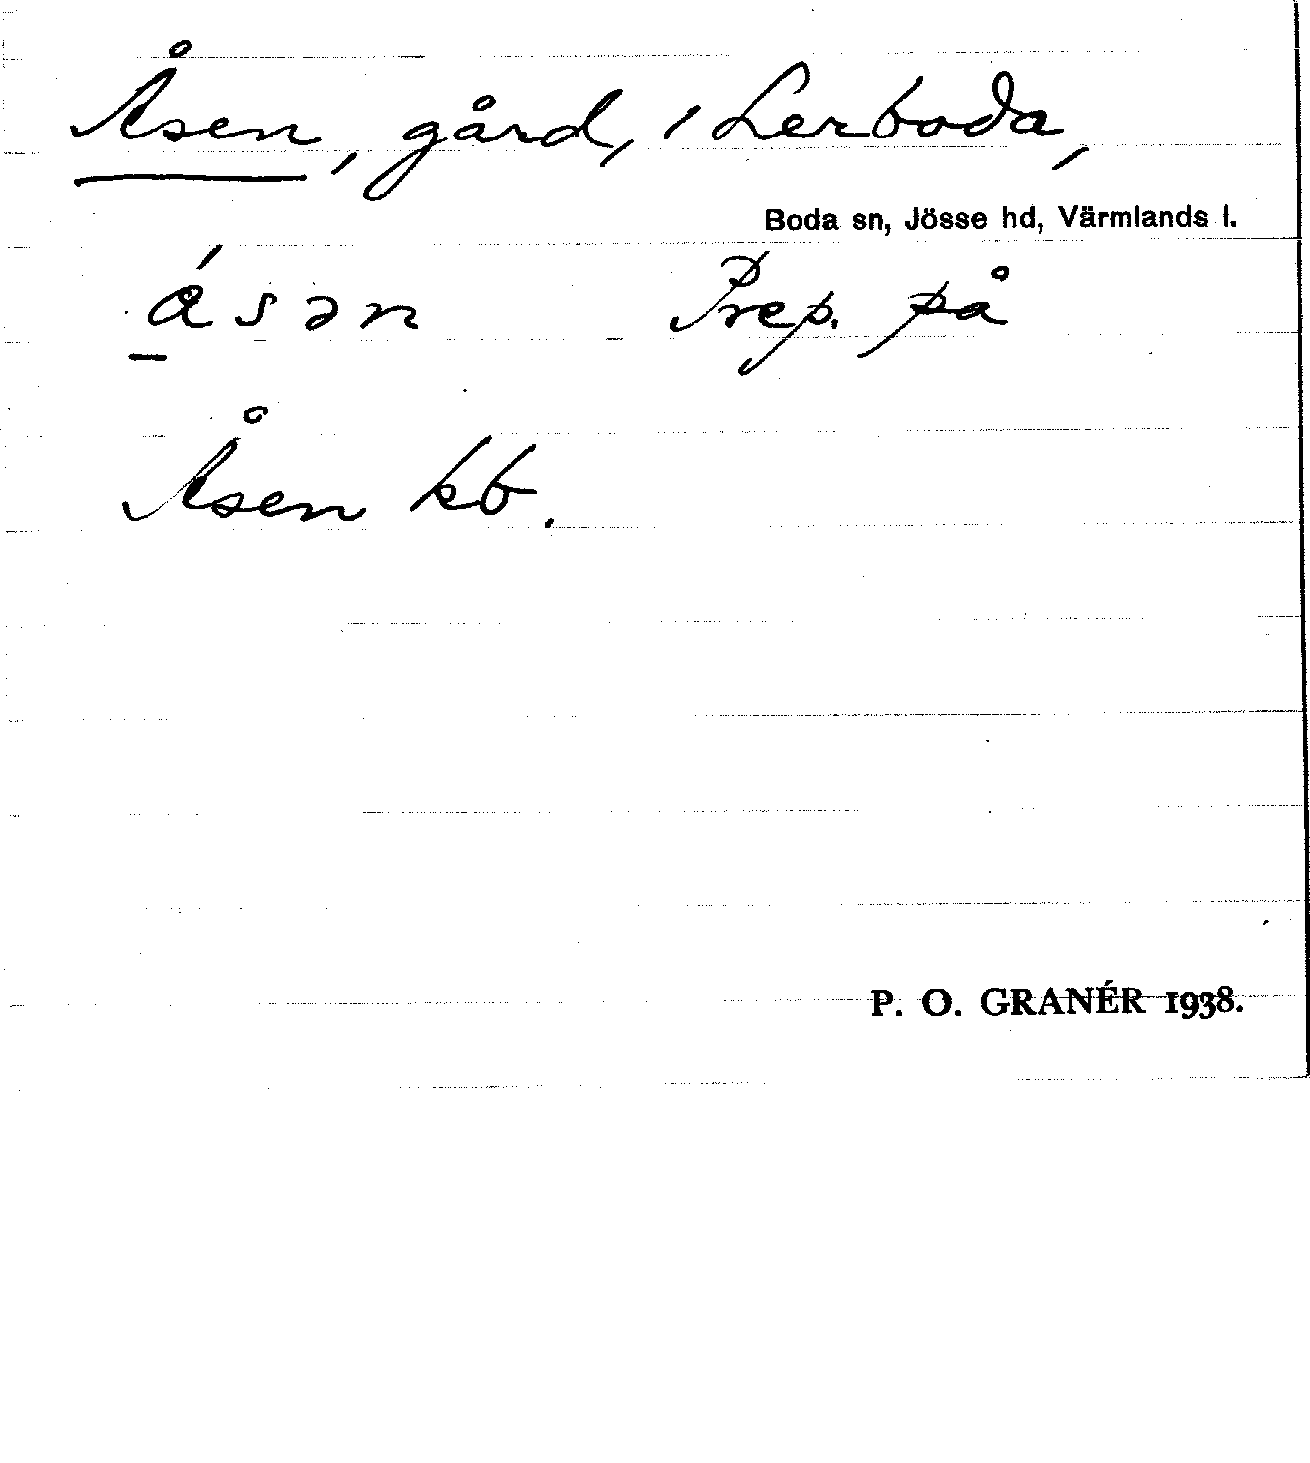 Åsen, gård, i Lerboda,
Boda sn, Jösse hd, Värmlands l.
ásən Prep. på
Åsen kb.
P. O. GRANÉR 1938.